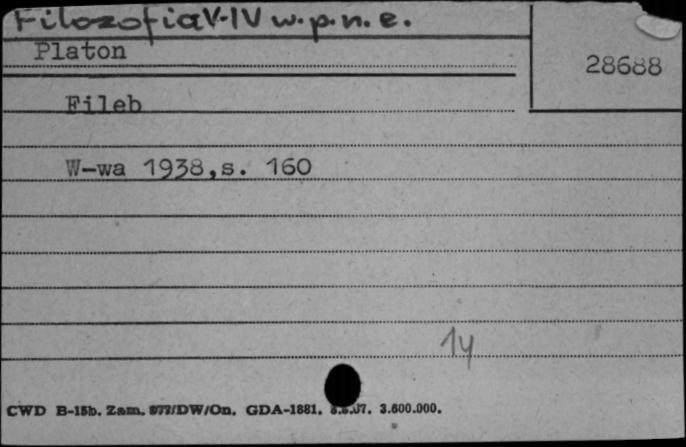 Filozofia V-IV w.p.n.e.
Platon
28688
Fileb
W-wa 1938,s. 160
14
CWD B-15b. Zam. 977/DW/On. GDA-1881. 3.600.000.